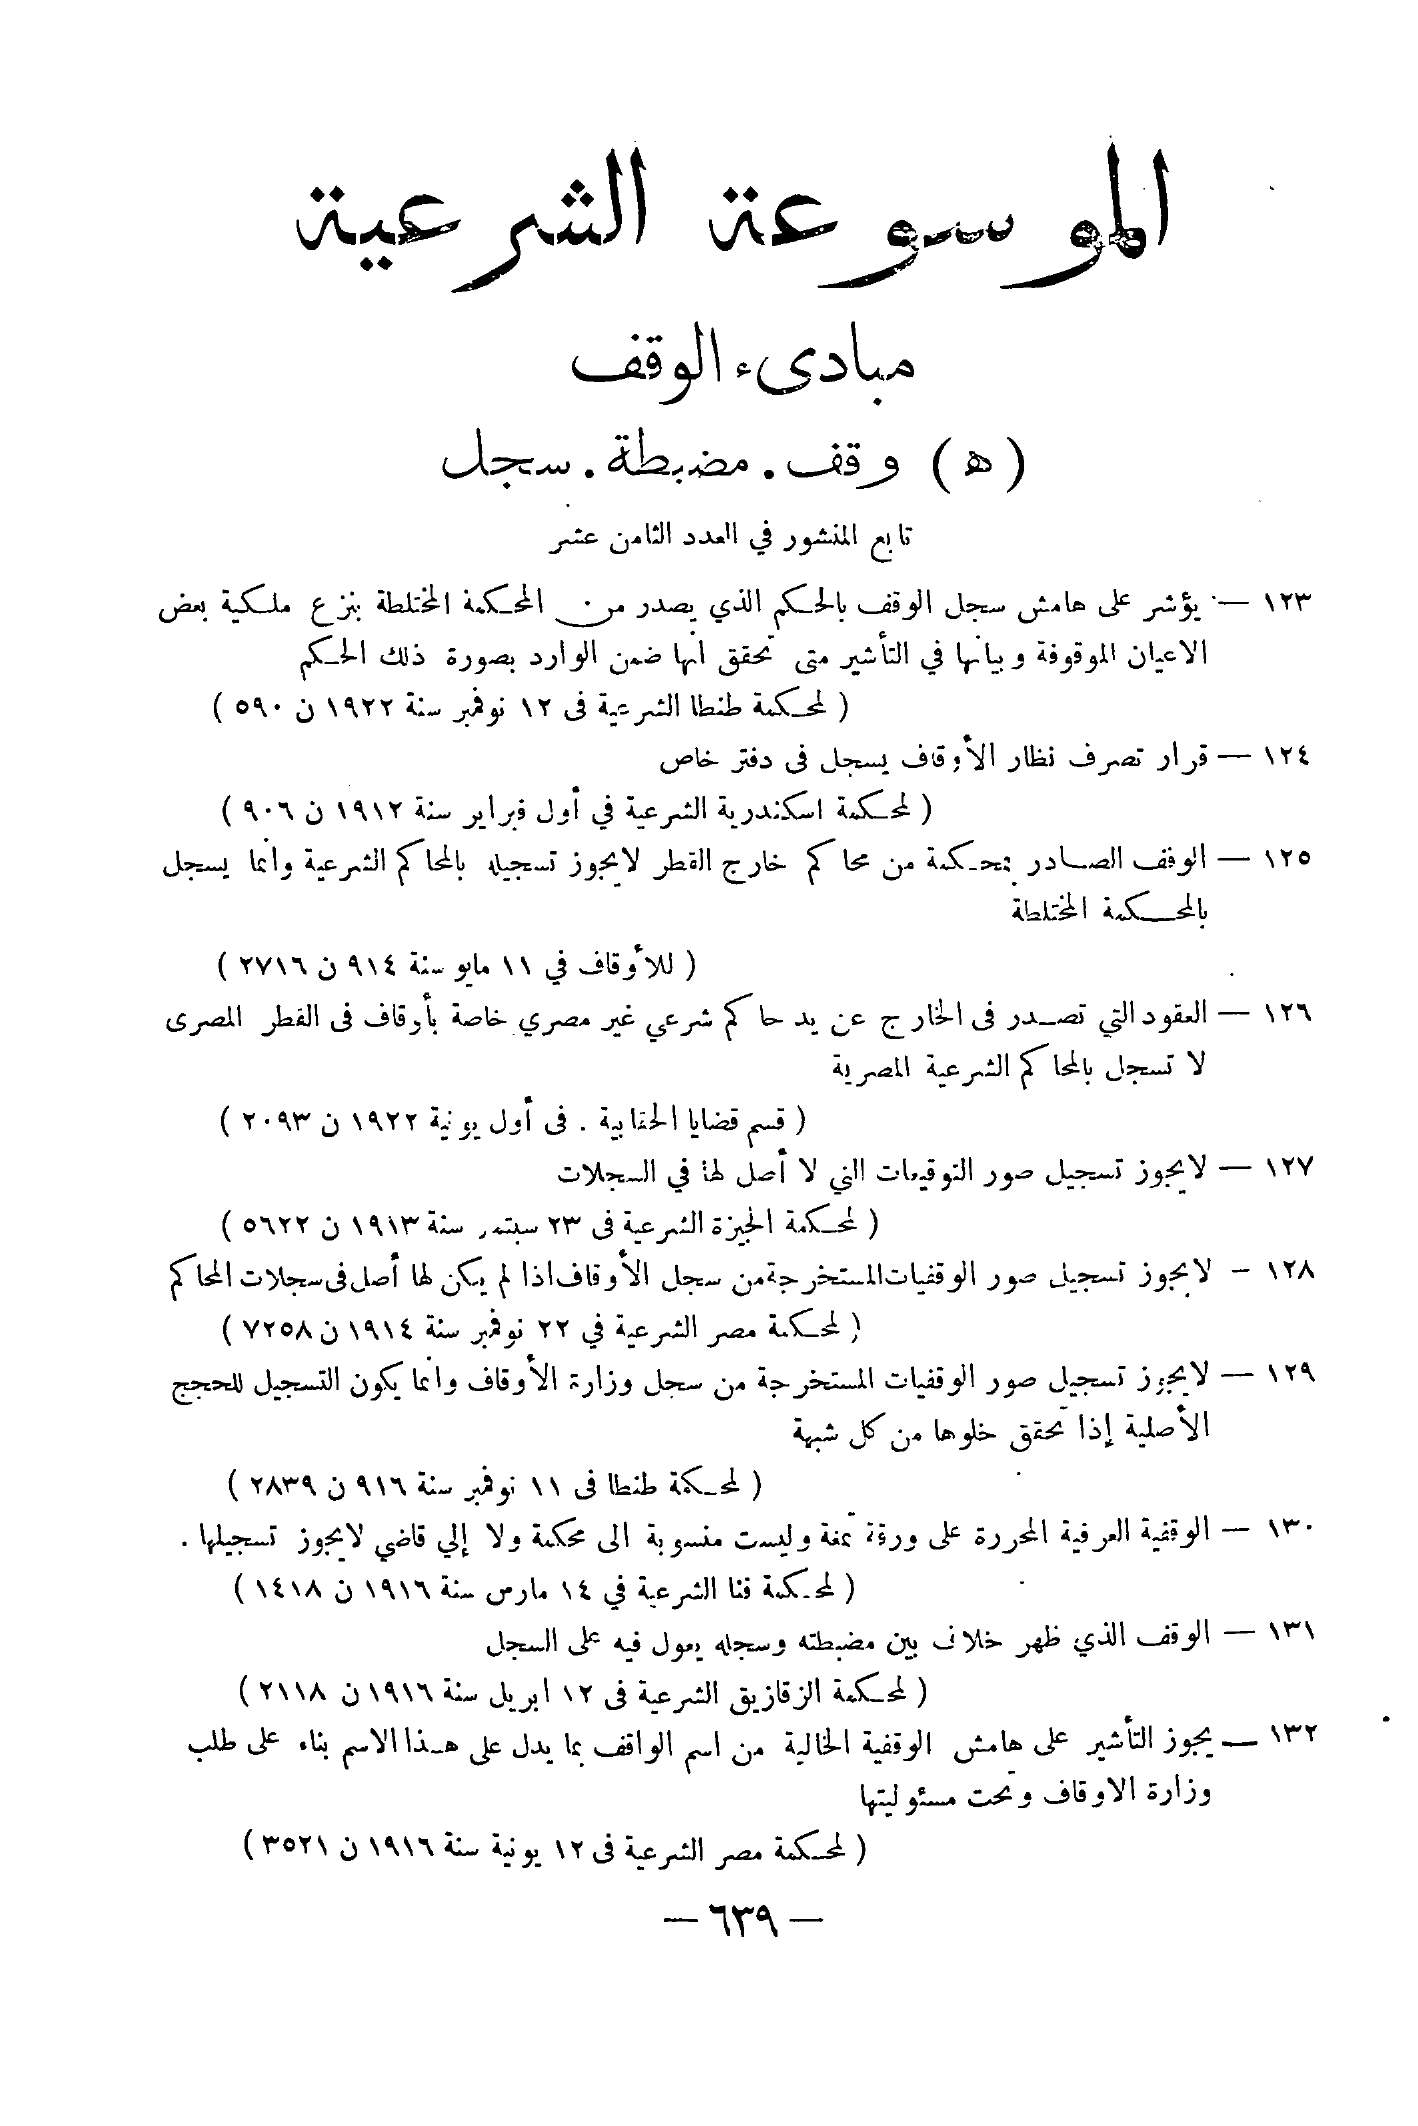 الموسوعة الشرعية
مبادىء الوقف
( ﻫ ) وقف . مضبطة . سجل
تابع المنشور في العدد الثامن عشر
١٢٣ — يؤشر على هامش سجل الوقف بالحكم الذي يصدر من المحكمة المختلطة بنزع ملكية بعض
الاعيان الموقوفة وبيانها في التأشير متى تحقق انها ضمن الوارد بصورة ذلك الحكم
( لمحكمة طنطا الشرعية فى ١٢ نوفمبر سنة ١٩٢٢ ن ٥٩٠ )
١٢٤ — قرار تصرف نظار الأوقاف يسجل فى دفتر خاص
( لمحكمة اسكندرية الشرعية في أول فبراير سنة ١٩١٢ ن ٩٠٦ )
١٢٥ — الوقف الصادر بمحكمة من محاكم خارج القطر لايجوز تسجيله بالمحاكم الشرعية وانما يسجل
بالمحكمة المختلطة
( للأوقاف في ١١ مايو سنة ٩١٤ ن ٢٧١٦ )
١٢٦ — العقود التي تصدر فى الخارج عن يد حاكم شرعي غير مصري خاصة بأوقاف فى القطر المصرى
لا تسجل بالمحاكم الشرعية المصرية
( قسم قضايا الحقابية . فى أول يونية ١٩٢٢ ن ٢٠٩٣ )
١٢٧ — لايجوز تسجيل صور التوقيعات التي لا أصل لها في السجلات
( لمحكمة الجيزة الشرعية فى ٢٣ سبتمبر سنة ١٩١٣ ن ٥٦٢٢ )
١٢٨ - لايجوز تسجيل صور الوقفيات المستخرجة من سجل الأوقاف اذا لم يكن لها أصل فى سجلات المحاكم
( لمحكمة مصر الشرعية في ٢٢ نوفمبر سنة ١٩١٤ ن ٧٢٥٨ )
١٢٩ — لايجوز تسجيل صور الوقفيات المستخرجة من سجل وزارة الأوقاف وانما يكون التسجيل للحجج
الأصلية إذا تحقق خلوها من كل شبهة
( لمحكمة طنطا فى ١١ نوفمبر سنة ٩١٦ ن ٢٨٣٩ )
١٣٠ — الوقفية العرفية المحررة على ورقة تمغة وليست منسوبة الى محكمة ولا إلي قاضي لايجوز تسجيلها .
( لمحكمة قنا الشرعية في ١٤ مارس سنة ١٩١٦ ن ١٤١٨ )
١٣١ — الوقف الذي ظهر خلاف بين مضبطته وسجله يعول فيه على السجل
( لمحكمة الزقازيق الشرعية فى ١٢ ابريل سنة ١٩١٦ ن ٢١١٨ )
١٣٢ — يجوز التأشير على هامش الوقفية الخالية من اسم الواقف بما يدل على هذا الاسم بناء على طلب
وزارة الاوقاف وتحت مسئوليتها
( لمحكمة مصر الشرعية فى ١٢ يونية سنة ١٩١٦ ن ٣٥٢١ )
— ٦٣٩ —